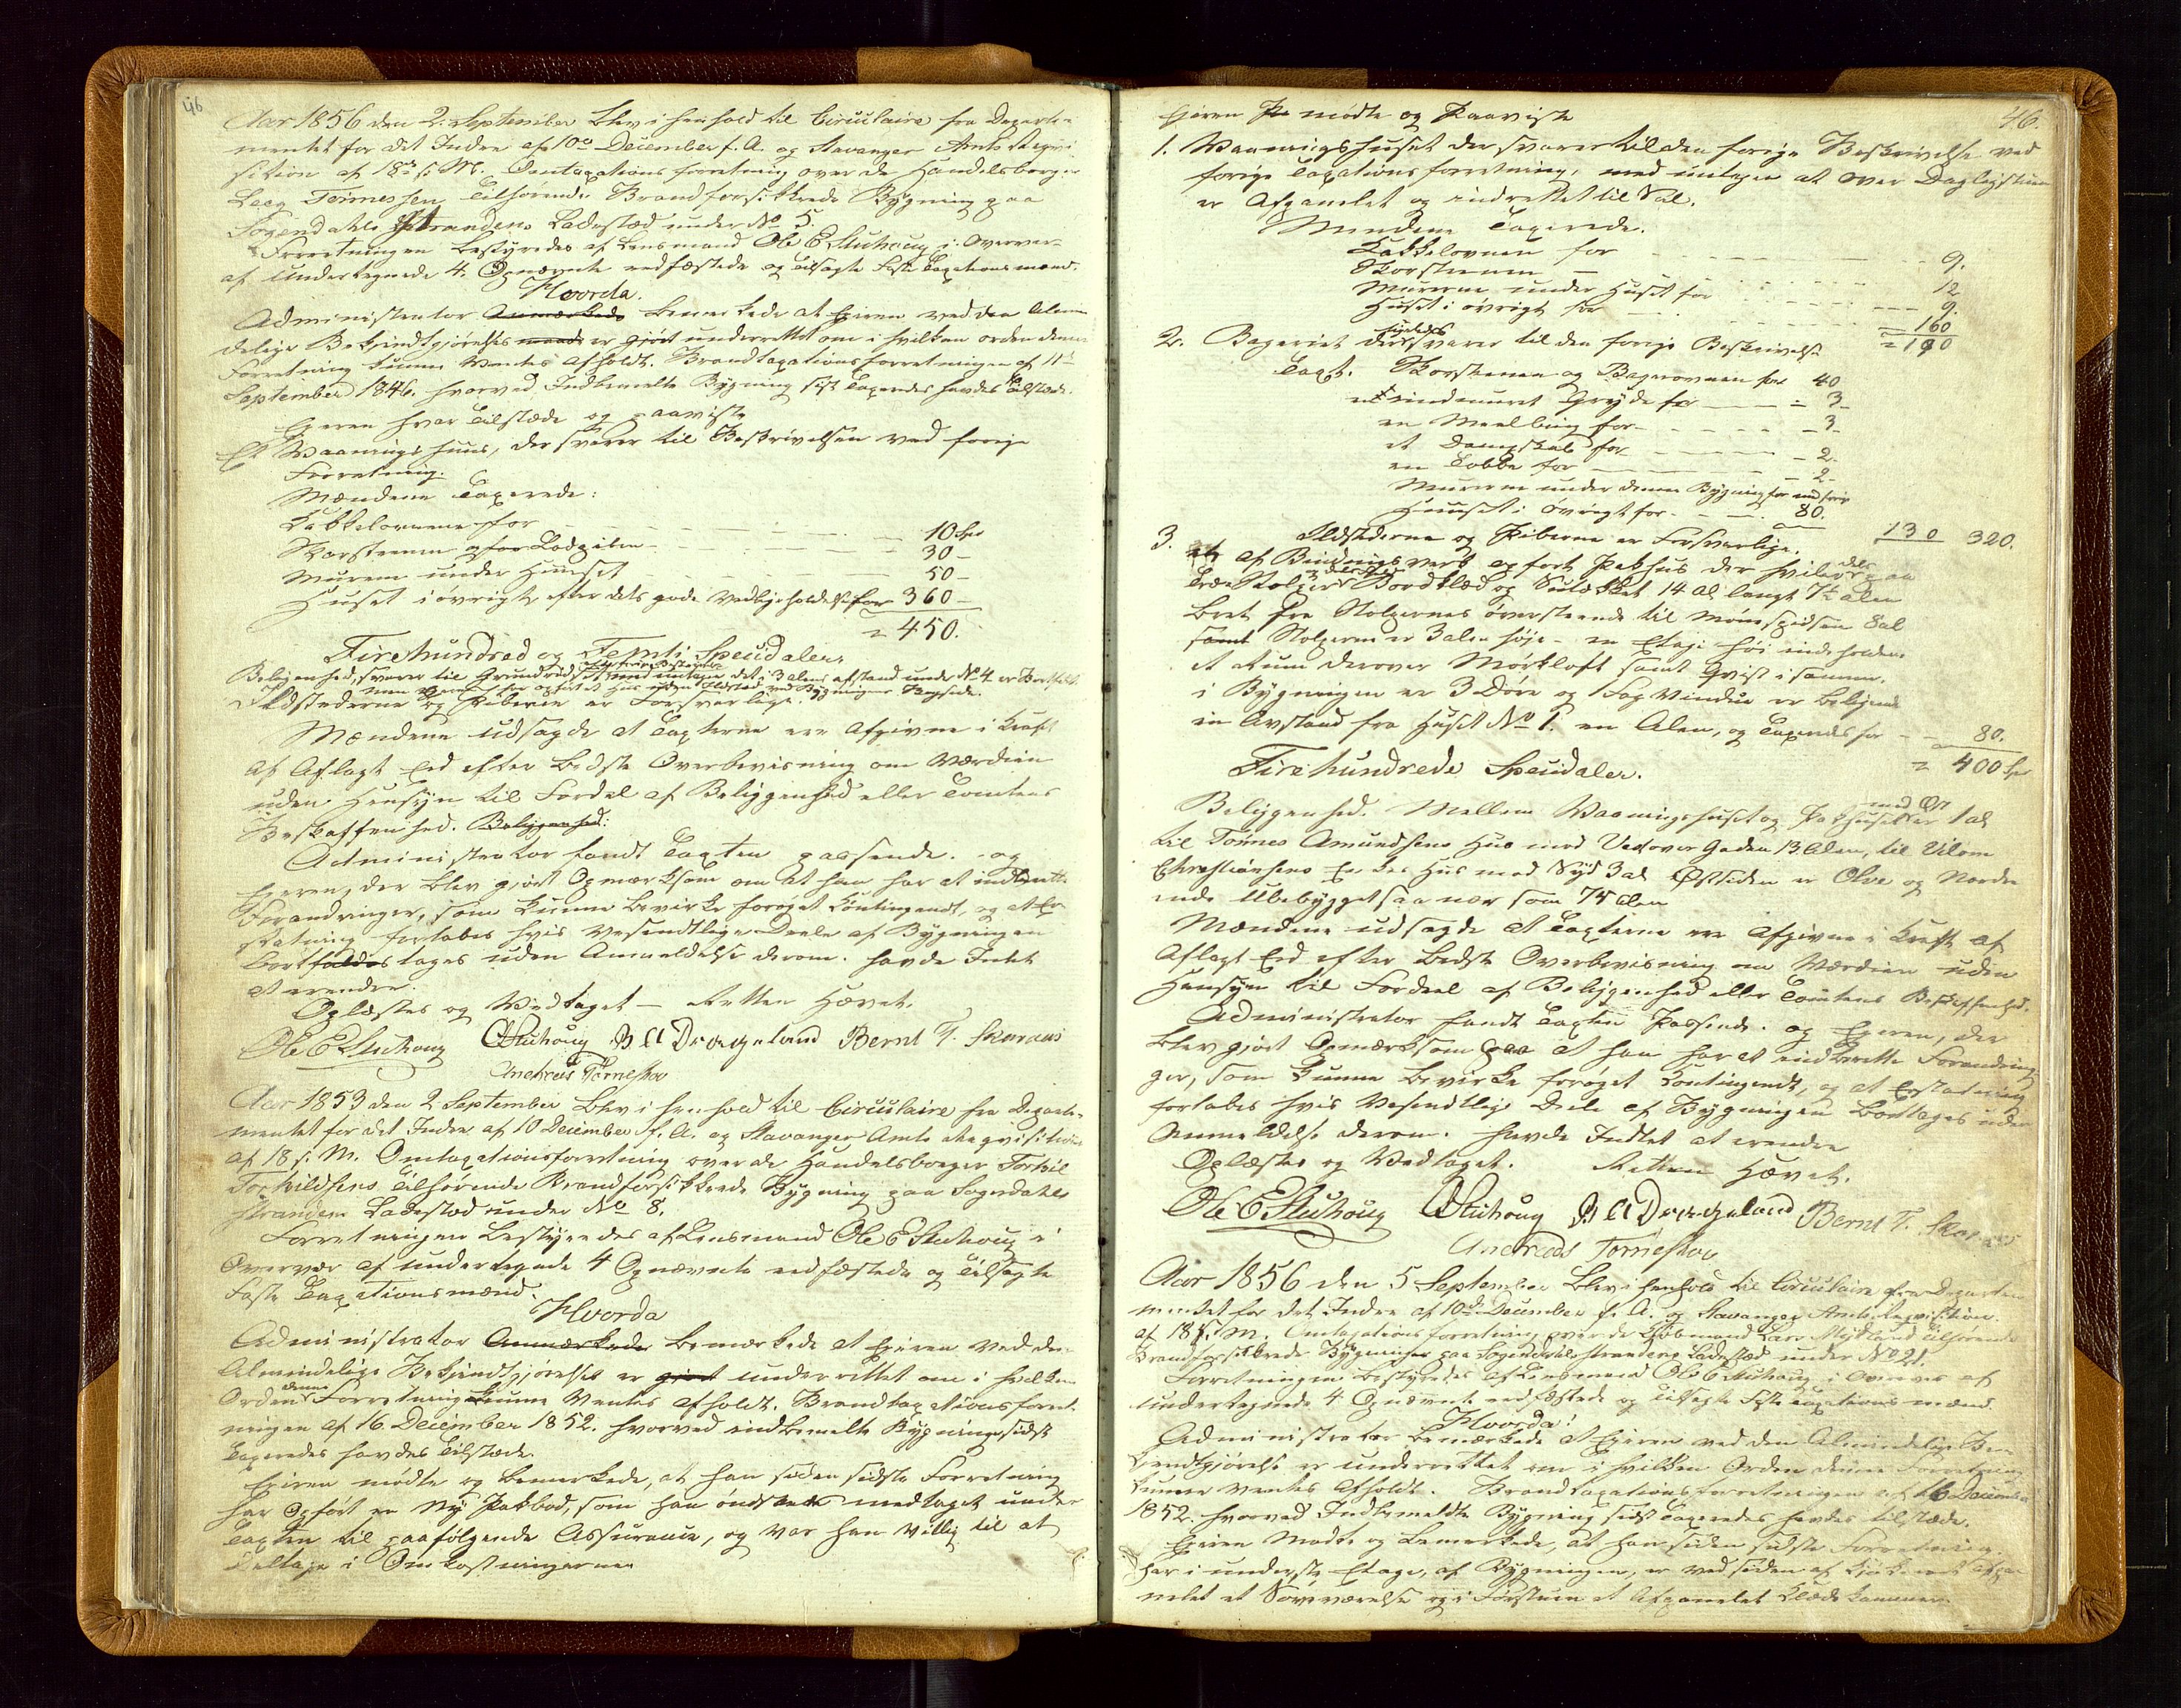 46
Aar 1856 den 2. September blev i henhold til Circulaire fra Departe-
mentet for det Indre af 10de December f. A. og Stavanger Amts Reqvi-
sition af 18de s. M. Omtaxationsforretning over de Handelsborger
Tønnessen tilhørende Brandforsikkrede Bygning paa
Sogendahls Strandens Ladested under No 5.
Forretningen bestyredes af Lensmand Ole E Stuhoug i Overvær-
af undertegnede 4. Opnævnte edfæstede og tilsagte faste Taxationsmænd.
Hvorda.
Administrator Anmærkede bemerkede at Eieren ved den Almin
delige Bekjendtgjørelse er gjort underrettet om i hvilken orden denne
Forretning kunne ventes afholdt. Brandtaxationsforretningen af 11te
September 1846. hvorved Indbemelte Bygning sist Taxeredes havdes tilstæde.
Eieren hvar tilstæde og paaviste
Et Vaaningshuus, der svarer til Beskrivelsen ved forige
Forretning.
Mændene Taxerede:
Kakkelovnene for 10 Spd
Skorstenen og for Lodpiben 30 -
Murene under Huuset 50 -
Huset i øvrigt efter dets gode Vedligeholdelse for 360 -
= 450.
Firehundred og Femti Specidaler.
Beligenhed, svarer til Grundrids med untagen det i 3 alens afstand under No 4. er Bortfalt
Ildstederne og Piberne er Forsvarlige.
Mændene udsagde at Taxterne ere Afgivne i Kraft
af Aflagt Eed efter bedste Overbevisning om Værdien
uden Hensyn til Fordel af Beliggenhed eller Tomtens
Beskaffenhed. Beliggenhed:
Administrator fandt Taxten passende. og
Eieren, der blev gjort Opmærksom om at han har at indberette
Forandringer, som kunne bevirke forøget Contingendt, og at Er-
statning fortabes hvis Vesendtlige Deele af Bygningen
bortfaldes tages uden Anmeldelse derom. havde Intet
at erendre.
Oplæstes og Vedtaget - Retten Hævet.
Ole E Stuhoug OStuhoug B A Drageland Bernt T. Skaraas
Andreas Tørneskov
Aar 1853 den 2 September blev i henhold til Circulaire fra Departe-
mentet for det Indre af 10 December f. A. og Stavanger Amts Reqvisition
af 18 s. M. Omtaxationsforretning over de Handelsborger Torkil
Torkildsens tilhørende Brandforsikkrede Bygning paa Sogndahls
stranden Ladested under No 8.
Forretningen bestyredes af Lensmand Ole E Stuhoug i
Overvær af undertegnede 4 Opnævnte edfæstede og tilsagte
faste Taxationsmænd.
Hvorda
Administrator Anmærkede bemærkede at Eieren ved den
Almindelige Bekjendtgjørelse er gjort underrettet om i hvilken
Orden denne Forretning kunne ventes afholdt. Brandtaxationsforret-
ningen af 16 December 1852. hvorved indbemelte Bygninge sidst
Taxeredes havdes tilstæde.
Eieren mødte og bemerkede, at han siden sidste Forretning
har opført en Ny Pakbod, som han ønskede medtaget under
Taxten til paafølgende Assurance, og var han villig til at
deltage i Omkostningerne.
46.
Eieren Pa mødte og Paaviste
1. Vaaningshuset der svarer til den forige Beskrivelse ved
forige Taxationsforretning, med untagen at over Dagligstuen
er Afpanelet og indrettet til Sal.
Mændene Taxerede.
Kakkelovnen for 9.
Skorstenen - 12
Murene under Huset for 9.
Huset i øvrigt for 160
= 190
2. Bageriet der ligeledes svarer til den forige Beskrivelse
Taxt. Skorstenen og Bagerovnen for 40
et indmuret Gryde for 3 -
en Meelbing for 3 -
et Dampskab for 2 -
en Tobbe for 2 -
Murene under denne Bygning for
Huuset i øvrigt for 80.
Ildstederne og Piberne er Forsvarlige. 130 320.
3. et af Bindingsverk opført Pakhus der hviler paa
Træ Stolper Bordklæd og 14 Al langt 7½ Alen
bret fra Stolpernes øverste ende til Mønespidsen 8 al
samt Stolperne er 3 alen høje - en Etage høi indeholden
et Rum derover Mørkloft samt Qvist i samme.
i Bygningen er 3 Døre og 1 Fag Vindue er beligende
in Avstand fra Huset No 1. en Alen, og Taxeredes for 80.
Firehundrede Specidaler. = 400 Spd
Beliggenhed. Mellem Vaaningshuset og Pakhuset mod Øst er 1 al
til Tønnes Amundsens Hus mod Vest over Gaden 13 Alen, til Vilom
Christiansens Enkes Hus mod Syd 3 al Østsiden er Elve og Nordre
ende Ubebygget saa nær som 75 Alen
Mændene udsagde at Taxterne ere Afgivne i Kraft af
Aflagt Eed efter bedste Overbevisning om Værdien uden
Hensyn til Fordeel af Beliggenhed eller Tomtens Beskaffenhed.
Administrator fandt Taxten Passende. og Eieren, der
blev gjort Opmærksom paa at han har at indberette Forandrin-
ger, som kunne bevirke forøget Contingendt, og at Erstatning
fortabes hvis Vesendtlige Dele af Bygningen Borttages uden
Anmeldelse derom. havde Indtet at erendre
Oplæstes og Vedtaget. Retten Hævet.
Ole E Stuhoug OStuhoug B A Drageland Bernt T. Skaraas
Andreas Tørneskov
Aar 1856 den 5 September blev i henhold til Circulaire fra Departe-
mentet for det Indre af 10de December f. A. og Stavanger Amts Reqvisition.
af 18 s. M. Omtaxationsforretning over de Kjøbmand Lars Mydland tilhørende
Brandforsikkrede Bygninger paa Sogendahlsstrandens Ladested under No 21.
Forretningen bestyredes af Lensmand Ole E Stuhoug i Overvær af
undertegnede 4 Opnævnte edfæstede og tilsagte faste Taxations mænd.
Hvorda!
Administrator bemærkede at Eieren ved den Almindelige Be-
kjendtgjørelse er underrettet om i hvilken Orden denne Forretning
kunne ventes Afholdt. Brandtaxationsforretningen af 16 December
1852. hvorved Indbemeldte Bygning sidst Taxeredes havdes tilstæde.
Eieren Mødte og bemerkede, at han siden sidste Forretning.
har i underste Etage, af Bygningen, er ved siden af Kjøkenet afpa-
nelet et Soveværelse og i Forstuen et Afpanelet Klædekammer